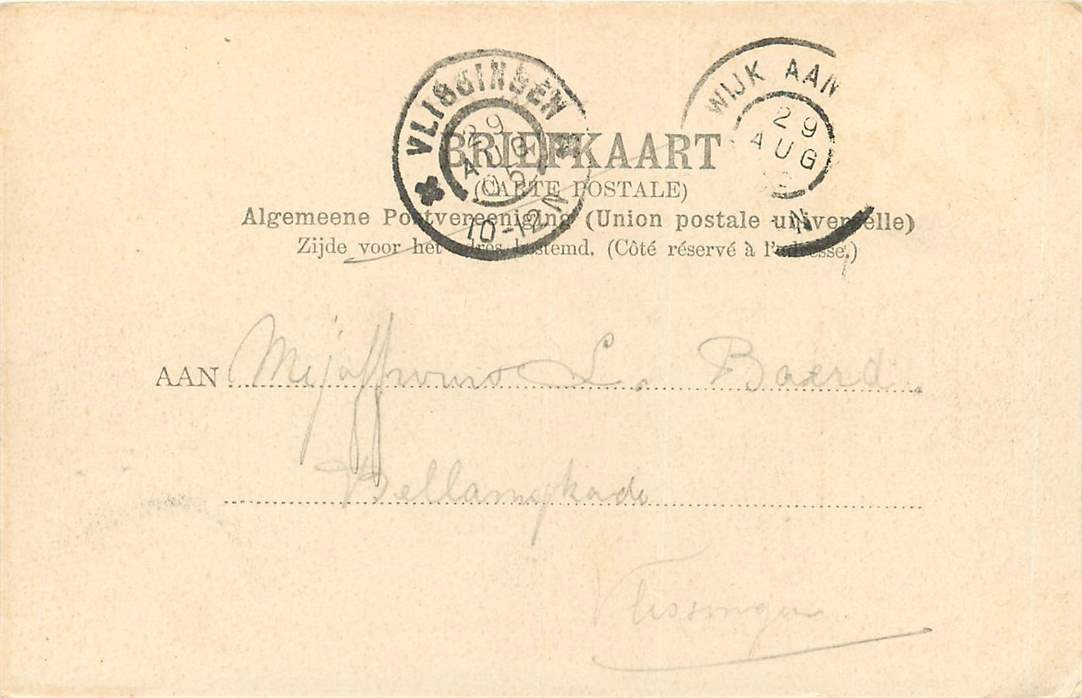 VLISSINGEN
29
AUG
05
10-12N
WIJK AAN
29
AUG
N
BRIEFKAART
(CARTE POSTALE)
Algemeene Postvereeniging (Union postale universelle)
Zijde voor het adres bestemd. (Côté réservé à l'adresse.)
AAN Mejuffrouw L. Baerd.
Bellamykade
Vlissingen.